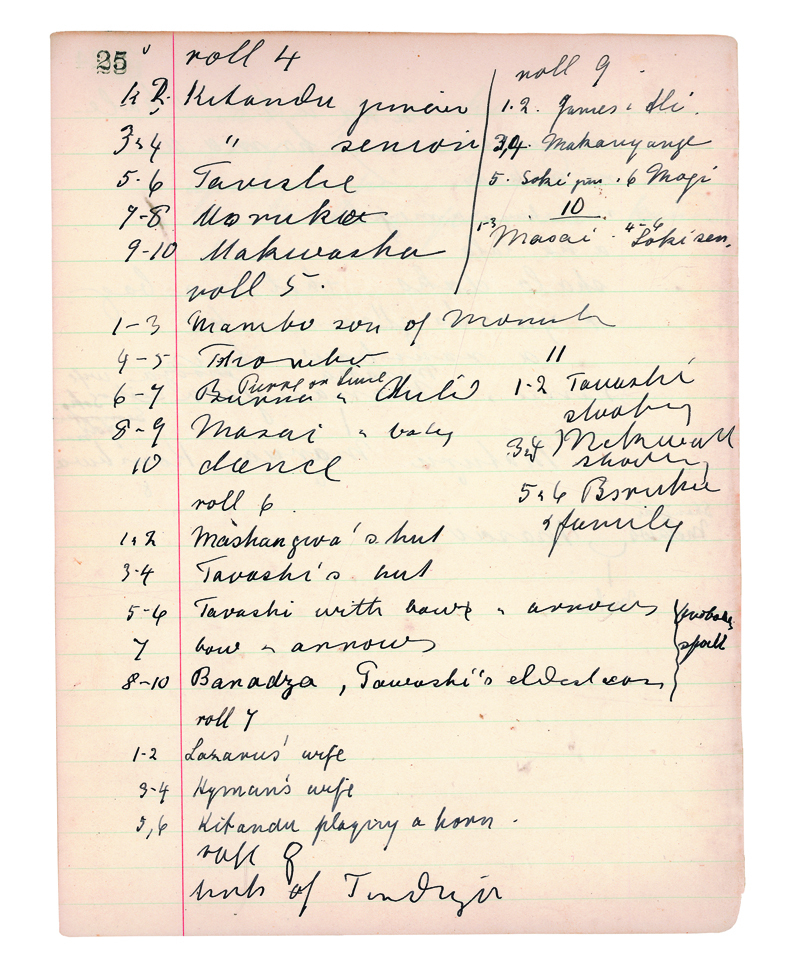 25
roll 4
1. 2. Kitandu junior
3, 4 " senior
5-6 Tavishe
7-8
9-10 Makwasha
roll 5.
1-3 Mambo son of
4-5
6-7
8-9 Masai " baby
10 dance
roll 6
1, 2 Mashangwa's hut
3-4 Tavashi's hut
5-6 Tavashi with bows " arrows
7 bow " arrows
8-10 Banadza, Tawashi's eldest son
probably
spoilt
roll 7
1-2 Lazarus' wife
3-4 Hyman's wife
5,6 Kitandu playing a horn.
roll 8
of
roll 9.
1.2. James
3,4. Makanyange
5. Soki jun. 6 Magi
10
1-3 Masai. 4-6 Soki sen.
11
1-2 Tavashi
3,4
5, 6
& family